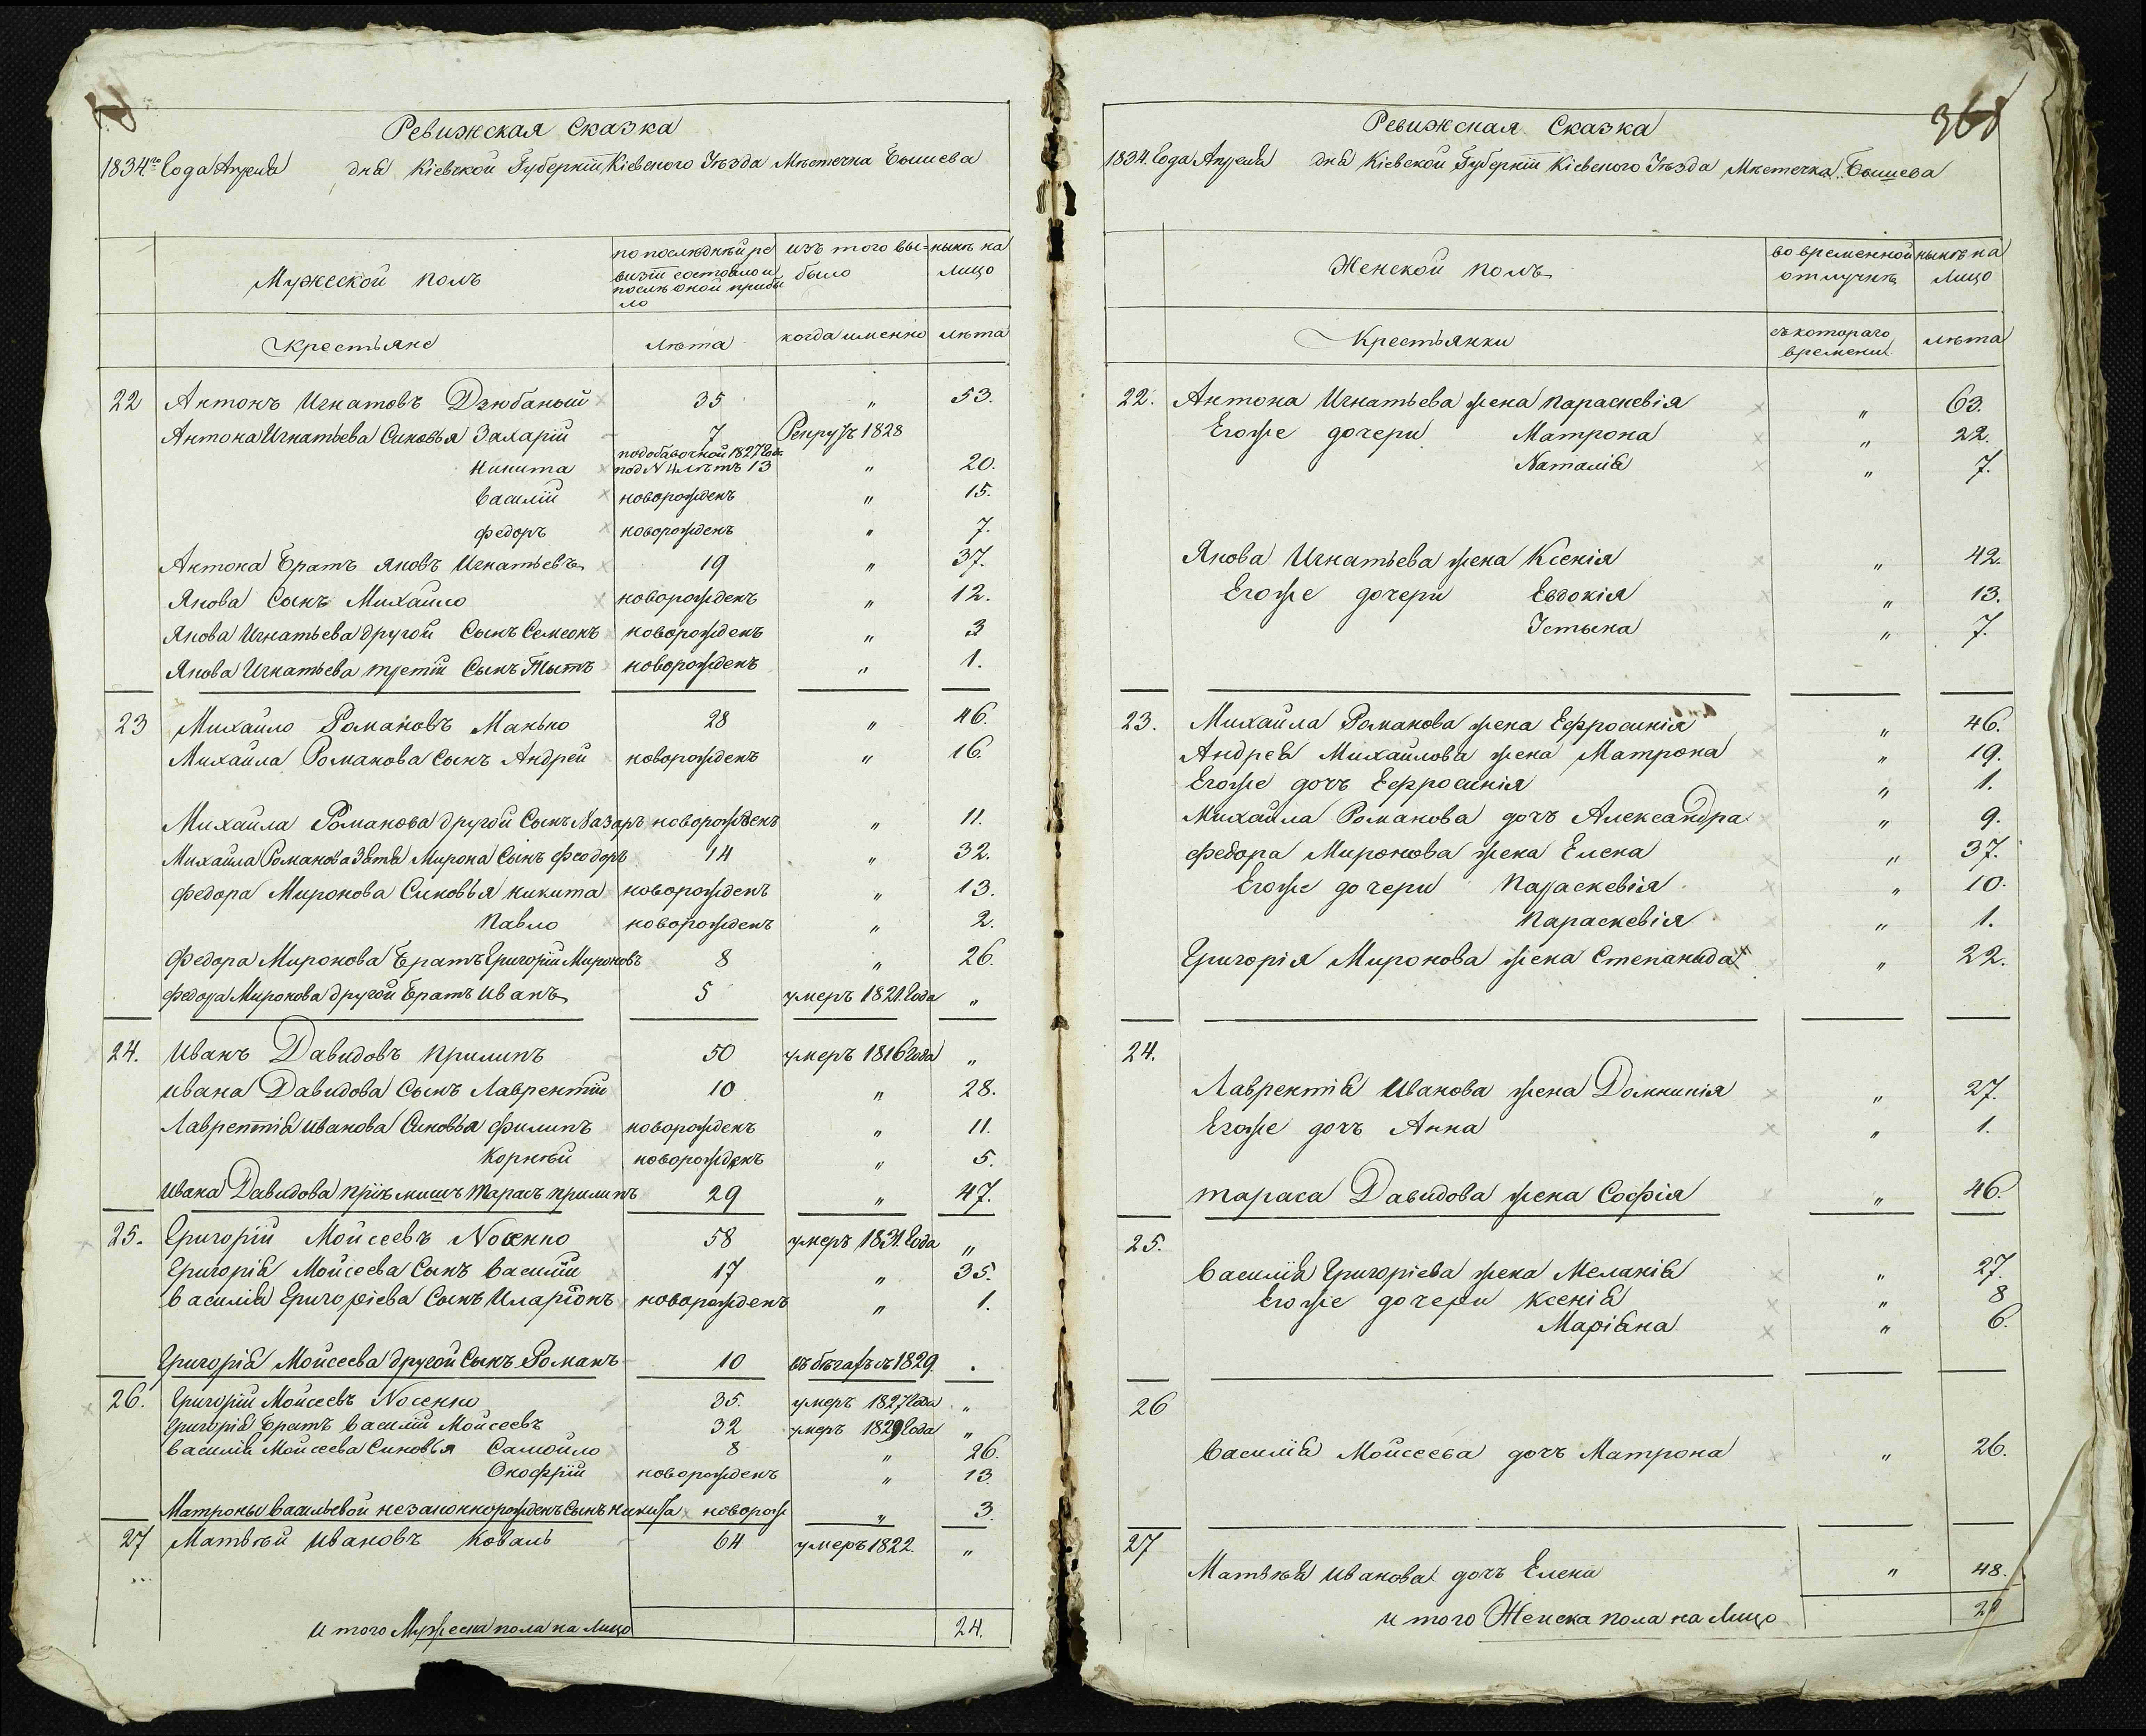 Ревижская Сказка
1834го Года Апреля дня Кіевской Губерніи Кіевского Уѣзда Мѣстечка Бышева
Мужеской полъ
по послѣдней ре
визіи состояло и
послѣ оной прибы
ло
изъ того вы=
было
нынѣ на
лицо
Крестьяне
лѣта
когда именно
лѣта
22 Антонъ Игнатовъ Дзюбаный 35 „ 53.
Антона Игнатьева Сыновья Захарій 7 Рекрутъ 1828
Никита по добавочной 1827 Года под N 4 лѣтъ 13 „ 20.
Василій новорожденъ „ 15.
Федоръ новорожденъ „ 7.
Антона Братъ Яковъ Игнатьевъ 19 „ 37.
Якова Сынъ Михайло новорожденъ „ 12.
Якова Игнатьева другой Сынъ Семеонъ новорожденъ „ 3
Якова Игнатьева третій Сынъ Тытъ новорожденъ „ 1.
23 Михайло Романовъ Манько 28 „ 46.
Михайла Романова Сынъ Андрей новорожденъ „ 16.
Михайла Романова другой Сынъ Назаръ новорожденъ „ 11.
Михайла Романова Зятя Мирона Сынъ Феодоръ 14 „ 32.
Федора Миронова Сыновья Никита новорожденъ „ 13.
Павло новорожденъ „ 2.
Федора Миронова Братъ Григорій Мироновъ 8 „ 26.
Федора Миронова другой Братъ Иванъ 5 умеръ 1821. Года „
24. Иванъ Давидовъ Прилипъ 50 умеръ 1816 Года „
Ивана Давидова Сынъ Лаврентій 10 „ 28.
Лаврентія Иванова Сыновья Филипъ новорожденъ „ 11.
Корнѣй новорожденъ „ 5.
Ивана Давидова пріѣмышъ Тарасъ Прилипъ 29 „ 47.
25. Григорій Мойсеевъ Носенко 58 умеръ 1831. Года „
Григорія Мойсеева Сынъ Василій 17 „ 35.
Василія Григоріева Сынъ Иларіонъ новорожденъ „ 1.
Григорія Мойсеева другой Сынъ Романъ 10 въ бѣгахъ съ 1829. .
26. Григорій Мойсеевъ Носенко 35. умеръ 1827 Года „
Григорія Братъ Василій Мойсеевъ 32 умеръ 1829 Года „
Василія Мойсеева Сыновья Самойло 8 „ 26.
Онофрій новорожденъ „ 13.
Матроны Васильевой незаконнорожденъ Сынъ Никита новорож „ 3.
27 Матвѣй Ивановъ Коваль 64 умеръ 1822. „
И того Мужеска пола на Лицо 24.
368
Ревижская Сказка
1834. Года Апреля дня Кіевской Губерніи Кіевского Уѣзда Мѣстечка Бышева
Женской полъ
во временной
отлучкѣ
нынѣ на
Лицо
Крестьянки
съ котораго
времени
лѣта
22. Антона Игнатьева жена Параскевія „ 63.
Егоже дочери Матрона „ 22.
Наталія „ 7.
Якова Игнатьева жена Ксенія „ 42.
Егоже дочери Евдокія „ 13.
Устына „ 7.
23. Михайла Романова жена Ефросинія „ 46.
Андрея Михайлова жена Матрона „ 19.
Егоже дочъ Ефросинія „ 1.
Михайла Романова дочъ Александра „ 9.
Федора Миронова жена Елена „ 37.
Егоже дочери Параскевія „ 10.
Параскевія „ 1.
Григорія Миронова жена Степанида „ 22.
24.
Лаврентія Иванова жена Домникія „ 27.
Егоже дочъ Анна „ 1.
Тараса Давидова жена Софія „ 46.
25.
Василія Григоріева жена Меланія „ 27.
Егоже дочери Ксенія „ 8
Маріяна „ 6.
26
Василія Мойсеева дочъ Матрона „ 26.
27
Матвѣя Иванова дочъ Елена „ 48.
И того Женска пола на Лицо